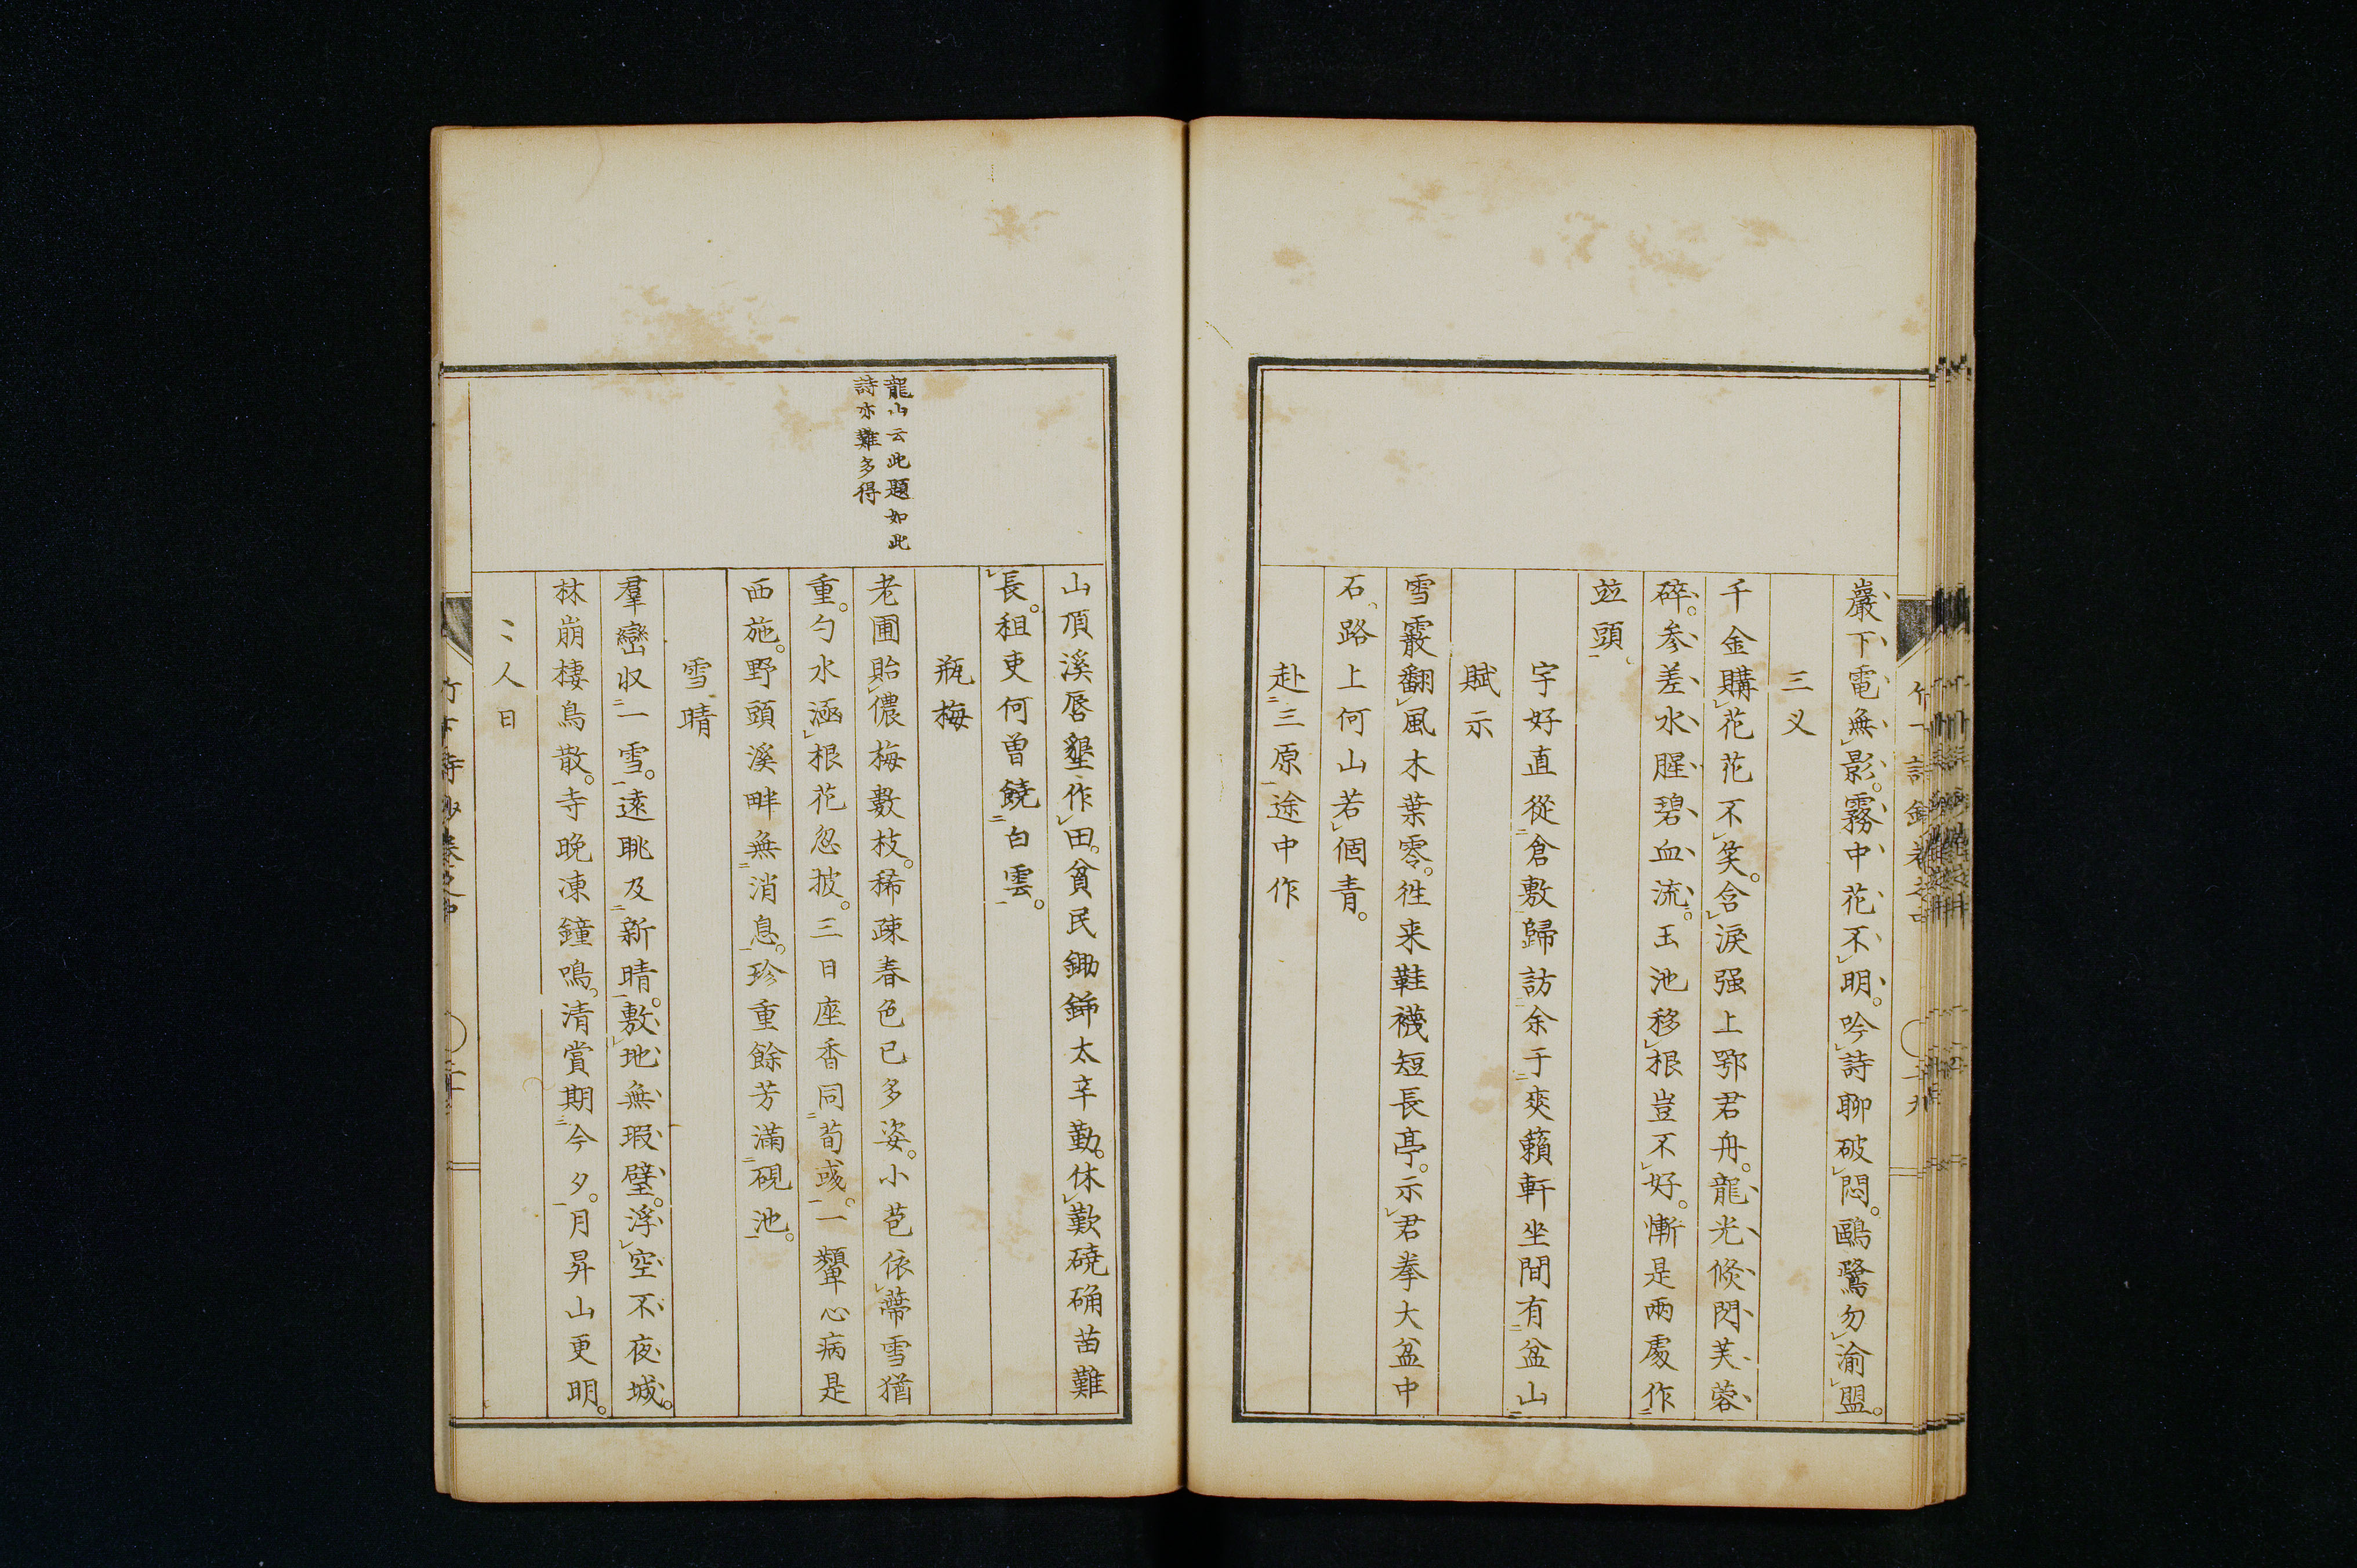 巖下電無影。霧中花不明。吟詩聊破悶。鷗鷺勿渝盟。
三叉
千金購花花不笑。含淚强上鄂君舟。龍光倏閃芙蓉
碎。参差水腥碧血流。玉池移根豈不好。慚是兩處作
竝頭
字好直從倉敷歸訪余于爽籟軒坐間有盆山
賦示
雪霰翻風木葉零。徃来鞋襪短長亭。示君拳大盆中
石。路上何山若個青。
赴三原途中作
山頂溪唇墾作田。貧民鋤鎒太辛勤。休歎磽确苗難
長。租吏何曽饒白雲。
瓶梅
龍山云此題如此
詩亦難多得
老圃貽儂梅數枝。稀疎春色已多姿。小苞依蔕雪猶
重。勺水涵根花忽披。三日座香同荀彧。一顰心病是
西施。野頭溪畔無消息。珍重餘芳滿硯池。
雪晴
羣巒収一雪。遠眺及新晴。敷地無瑕璧。浮空不夜城。
林崩棲鳥散。寺晩凍鐘鳴。清賞期今夕。月昇山更明。
〻人日